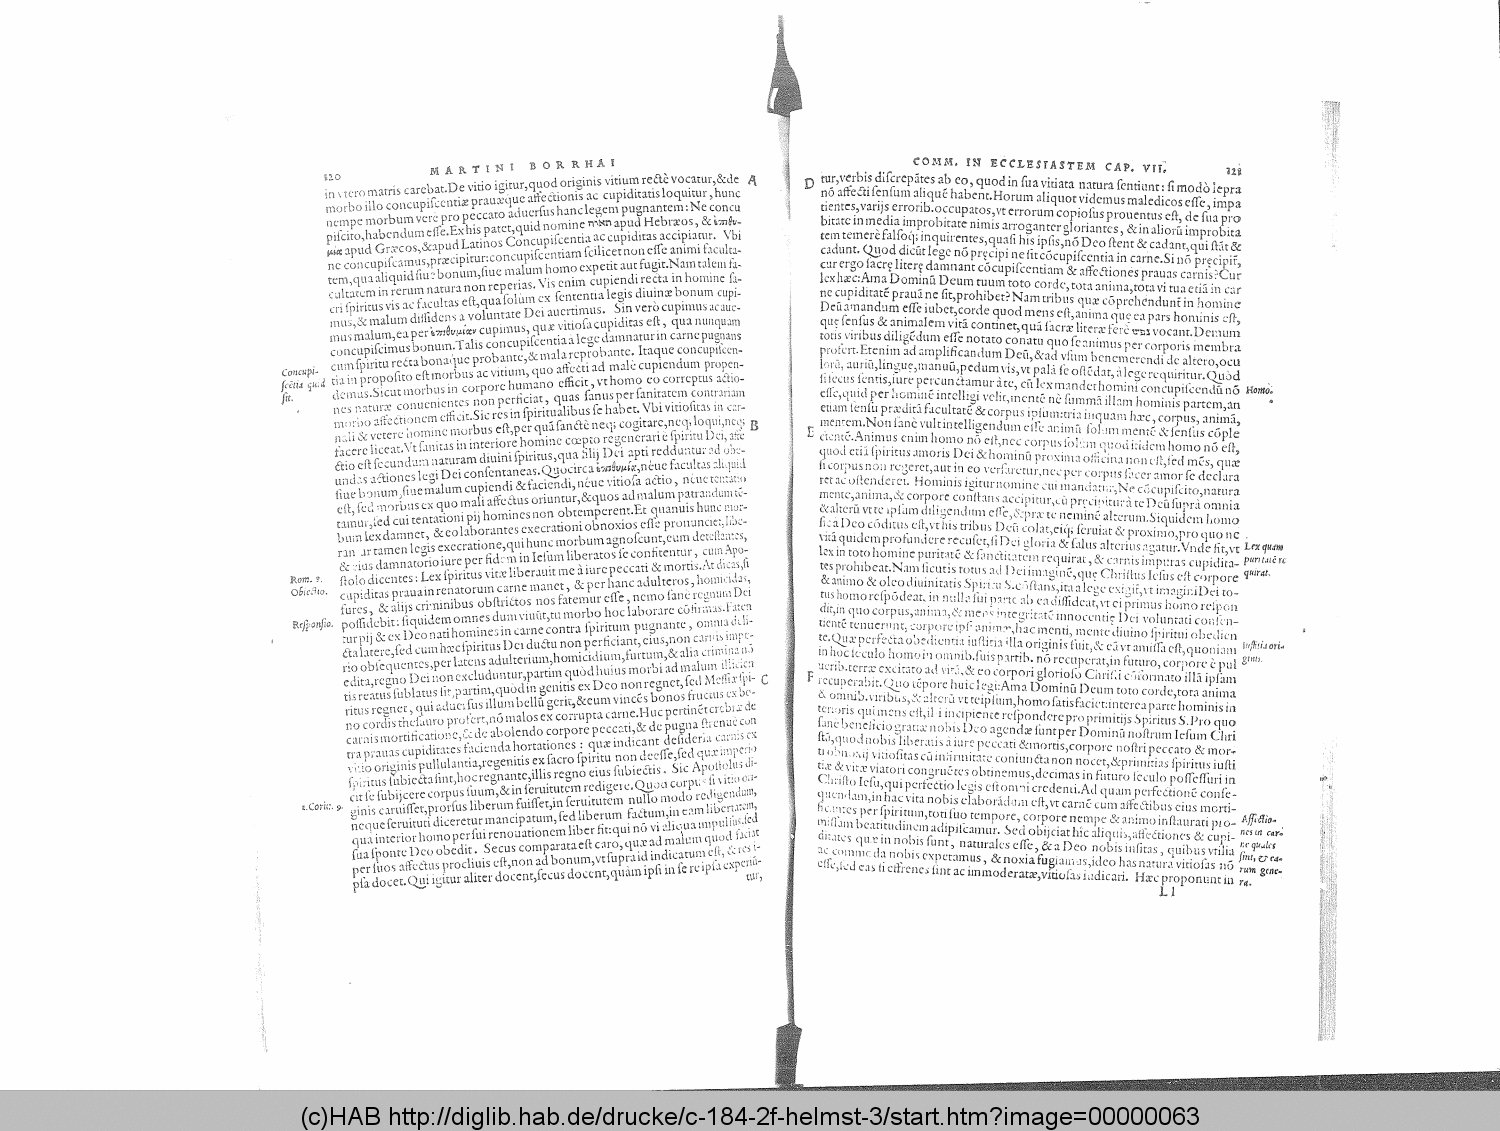 320
MARTINI BORRHAI
in vtero matris carebat. De vitio igitur, quod originis vitium rectè vocatur, & de A
morbo illo concupiscentiæ prauæque affectionis ac cupiditatis loquitur, hunc
nempe morbum verè pro peccato aduersus hanc legem pugnantem: Ne concu
piscito, habendum esse. Ex his patet, quid nomine apud Hebræos, & ἐπιθυ-
μίας apud Græcos, & apud Latinos Concupiscentia ac cupiditas accipiatur. Vbi
ne concupiscamus, præcipitur: concupiscentiam scilicet non esse animi faculta-
tem, qua aliquid siue bonum, siue malum homo expetit aut fugit. Nam talem fa-
cultatem in rerum natura non reperias. Vis enim cupiendi recta in homine sa-
cri spiritus vis ac facultas est, qua solum ex sententia legis diuinæ bonum cupi-
mus, & malum diffidens à voluntate Dei auertimus. Sin verò cupimus ac aue-
mus malum, ea per ἐπιθυμίαν cupimus, quæ vitiosa cupiditas est, qua nunquam
concupiscimus bonum. Talis concupiscentia a lege damnatur in carne pugnans
cum spiritu recta bonaque probante, & mala reprobante. Itaque concupiscen-
Concupi-
scētia quid
sit.
tia in proposito est morbus ac vitium, quo affecti ad malè cupiendum propen-
demus. Sicut morbus in corpore humano efficit, vt homo eo correptus actio-
nes naturæ conuenientes non perficiat, quas sanus per sanitatem contrariam
morbo affectionem efficit. Sic res in spiritualibus se habet. Vbi vitiositas in car-
nali & vetere homine morbus est, per quā sanctè neq; cogitare, neq; loqui, neq; B
facere liceat. Vt sanitas in interiore homine cœpto regenerari è spiritu Dei, affe
ctio est secundum naturam diuini spiritus, qua filij Dei apti redduntur ad obe-
undas actiones legi Dei consentaneas. Quocirca ἐπιθυμία, neue facultas aliquid
siue bonum, siue malum cupiendi & faciendi, neue vitiosa actio, neue tentatio
est, sed morbus ex quo mali affectus oriuntur, & quos ad malum patrandum tē-
tamur, sed cui tentationi pij homines non obtemperent. Et quanuis hunc mor-
bum lex damnet, & eo laborantes execrationi obnoxios esse pronunciet, libe-
ran tamen legis execratione, qui hunc morbum agnoscunt, eum detestantes,
& eius damnatorio iure per fidem in Iesum liberatos se confitentur, cum Apo-
Rom. 8.
stolo dicentes: Lex spiritus vitæ liberauit me à iure peccati & mortis. At dicas, si
Obiectio.
cupiditas praua in renatorum carne manet, & per hanc adulteros, homicidas,
fures, & alijs criminibus obstrictos nos fatemur esse, nemo sanè regnum Dei
Responsio.
possidebit: siquidem omnes dum viuūt, tu morbo hoc laborare cōfirmas. Faten
tur pij & ex Deo nati homines in carne contra spiritum pugnante, omnia deli-
cta latere, sed cum hæc spiritus Dei ductu non perficiant, eius, non carnis impe-
rio obsequentes, per latens adulterium, homicidium, furtum, & alia crimina nō
edita, regno Dei non excluduntur, partim quòd huius morbi ad malum illicien
tis reatus sublatus sit, partim, quòd in genitis ex Deo non regnet, sed Messiæ spi- C
ritus regnet, qui aduersus illum bellū gerit, & eum vincēs bonos fructus ex bo-
no cordis thesauro profert, nō malos ex corrupta carne. Huc pertinēt crebræ de
carnis mortificatione, & de abolendo corpore peccati, & de pugna strenuè con
tra prauas cupiditates facienda hortationes: quæ indicant desideria carnis ex
vitio originis pullulantia, regenitis ex sacro spiritu non deesse, sed quæ imperio
spiritus subiecta sint, hoc regnante, illis regno eius subiectis. Sic Apostolus di-
cit se subijcere corpus suum, & in seruitutem redigere. Quod corpus si vitio ori-
1. Corin. 9.
ginis caruisset, prorsus liberum fuisset, in seruitutem nullo modo redigendum,
neque seruituti diceretur mancipatum, sed liberum factum, in eam libertatem,
qua interior homo per sui renouationem liber fit: qui nō vi aliqua impulsus, sed
sua sponte Deo obedit. Secus comparata est caro, quæ ad malum quod faciat
per suos affectus procliuis est, non ad bonum, vt supra id indicatum est, & res i-
psa docet. Qui igitur aliter docent, secus docent, quàm ipsi in se re ipsa experiū-
tur,
COMM. IN ECCLESIASTEM CAP. VII.
321
D tur, verbis discrepātes ab eo, quod in sua vitiata natura sentiunt: si modò lepra
nō affecti sensum aliquē habent. Horum aliquot videmus maledicos esse, impa
tientes, varijs errorib. occupatos, vt errorum copiosus prouentus est, de sua pro
bitate in media improbitate nimis arroganter gloriantes, & in aliorū improbita
tem temerè falsoq; inquirentes, quasi his ipsis, nō Deo stent & cadant, qui stāt &
cadunt. Quod dicūt lege nō pręcipi ne sit cōcupiscentia in carne. Si nō pręcipit,
cur ergo sacrę literę damnant cōcupiscentiam & affectiones prauas carnis? Cur
lex hæc: Ama Dominū Deum tuum toto corde, tota anima, tota vi tua etiā in car
ne cupiditatē prauā ne sit, prohibet? Nam tribus quæ cōprehendunt in homine
Deū amandum esse iubet, corde quod mens est, anima quę ea pars hominis est,
quę sensus & animalem vitā continet, quā sacræ literæ ferè vocant. Demum
totis viribus diligēdum esse notato conatu quo se animus per corporis membra
profert. Etenim ad amplificandum Deū, & ad vsum benemerendi de altero, ocu
lorū, auriū, linguę, manuū, pedum vis, vt palā se ostēdat, à lege requiritur. Quòd
si secus sentis, iure percunctamur à te, cū lex mandet homini concupiscendū nō
Homo.
esse, quid per hominē intelligi velit, mentē nè summā illam hominis partem, an
etiam sensu præditā facultatē & corpus ipsum: tria inquam hæc, corpus, animā,
mentem. Non sanè vult intelligendum esse animū solum mentē & sensus cōple
E ctentē. Animus enim homo nō est, nec corpus solum quod itidem homo nō est,
quod etiā spiritus amoris Dei & hominū proxima officina non est, sed mēs, quæ
si corpus non regeret, aut in eo versaretur, nec per corpus facer amor se declara
ret ac ostenderet. Hominis igitur nomine cui mandatur, Ne cōcupiscito, natura
mente, anima, & corpore constans accipitur, cū præcipitur à te Deū supra omnia
& alterū vt te ipsum diligendum esse, & præ te neminē alterum. Siquidem homo
sic a Deo cōditus est, vt his tribus Deū colat, eiq; seruiat & proximo, pro quo ne
vitā quidem profundere recuset, si Dei gloria & salus alterius agatur. Vnde fit, vt
Lex quam
puritatē re
quirat.
lex in toto homine puritatē & sanctitatem requirat, & carnis impuras cupidita-
tes prohibeat. Nam sicuti totus ad Dei imaginē, quę Christus Iesus est corpore
& animo & oleo diuinitatis Spiritu S. cōstans, ita a lege exigit, vt imagini Dei to-
tus homo respōdeat, in nulla sui parte ab ea diffideat, vt ei primus homo respon
dit, in quo corpus, anima, & mens integritatē innocentię Dei voluntati consen-
tientē tenuerunt, corpore ipsi animæ, hac menti, mente diuino spiritui obedien
te. Quæ perfecta obedientia iustitia illa originis fuit, & ea vt amissa est, quoniam
Iustitia ori-
ginis.
in hoc seculo homo in omnib. suis partib. nō recuperat, in futuro, corpore è pul
uerib. terræ excitato ad vitā, & eo corpori glorioso Christi cōformato illā ipsam
F recuperabit. Quo tēpore huic legi: Ama Dominū Deum toto corde, tota anima
& omnib. viribus, & alterū vt teipsum, homo satisfaciet: interea parte hominis in
terioris qui mens est, illi incipiente respondere pro primitijs Spiritus S. Pro quo
sanè beneficio gratiæ nobis Deo agendæ sunt per Dominū nostrum Iesum Chri
stū, quod nobis liberatis à iure peccati & mortis, corpore nostri peccato & mor-
ti obnoxij vitiositas cū infirmitate coniuncta non nocet, & primitias spiritus iusti
tiæ & vitæ viatori congruētes obtinemus, decimas in futuro seculo possessuri in
Christo Iesu, qui perfectio legis est omni credenti. Ad quam perfectionē conse-
quendam, in hac vita nobis elaborādum est, vt carnē cum affectibus eius morti-
ficantes per spiritum, tonsuo tempore, corpore nempe & animo instaurati pro-
missam beatitudinem adipiscamur. Sed obijciat hic aliquis, affectiones & cupi-
Affectio-
nes in car-
ne quales
sint, & ea-
rum gene-
ra.
ditates quæ in nobis sunt, naturales esse, & a Deo nobis insitas, quibus vtilia
ac commoda nobis expetamus, & noxia fugiamus, ideo has natura vitiosas nō
esse, sed eas si effrenes sint ac immoderatæ, vitiosas iudicari. Hæc proponunt in
Ll
(c)HAB http://diglib.hab.de/drucke/c-184-2f-helmst-3/start.htm?image=00000063